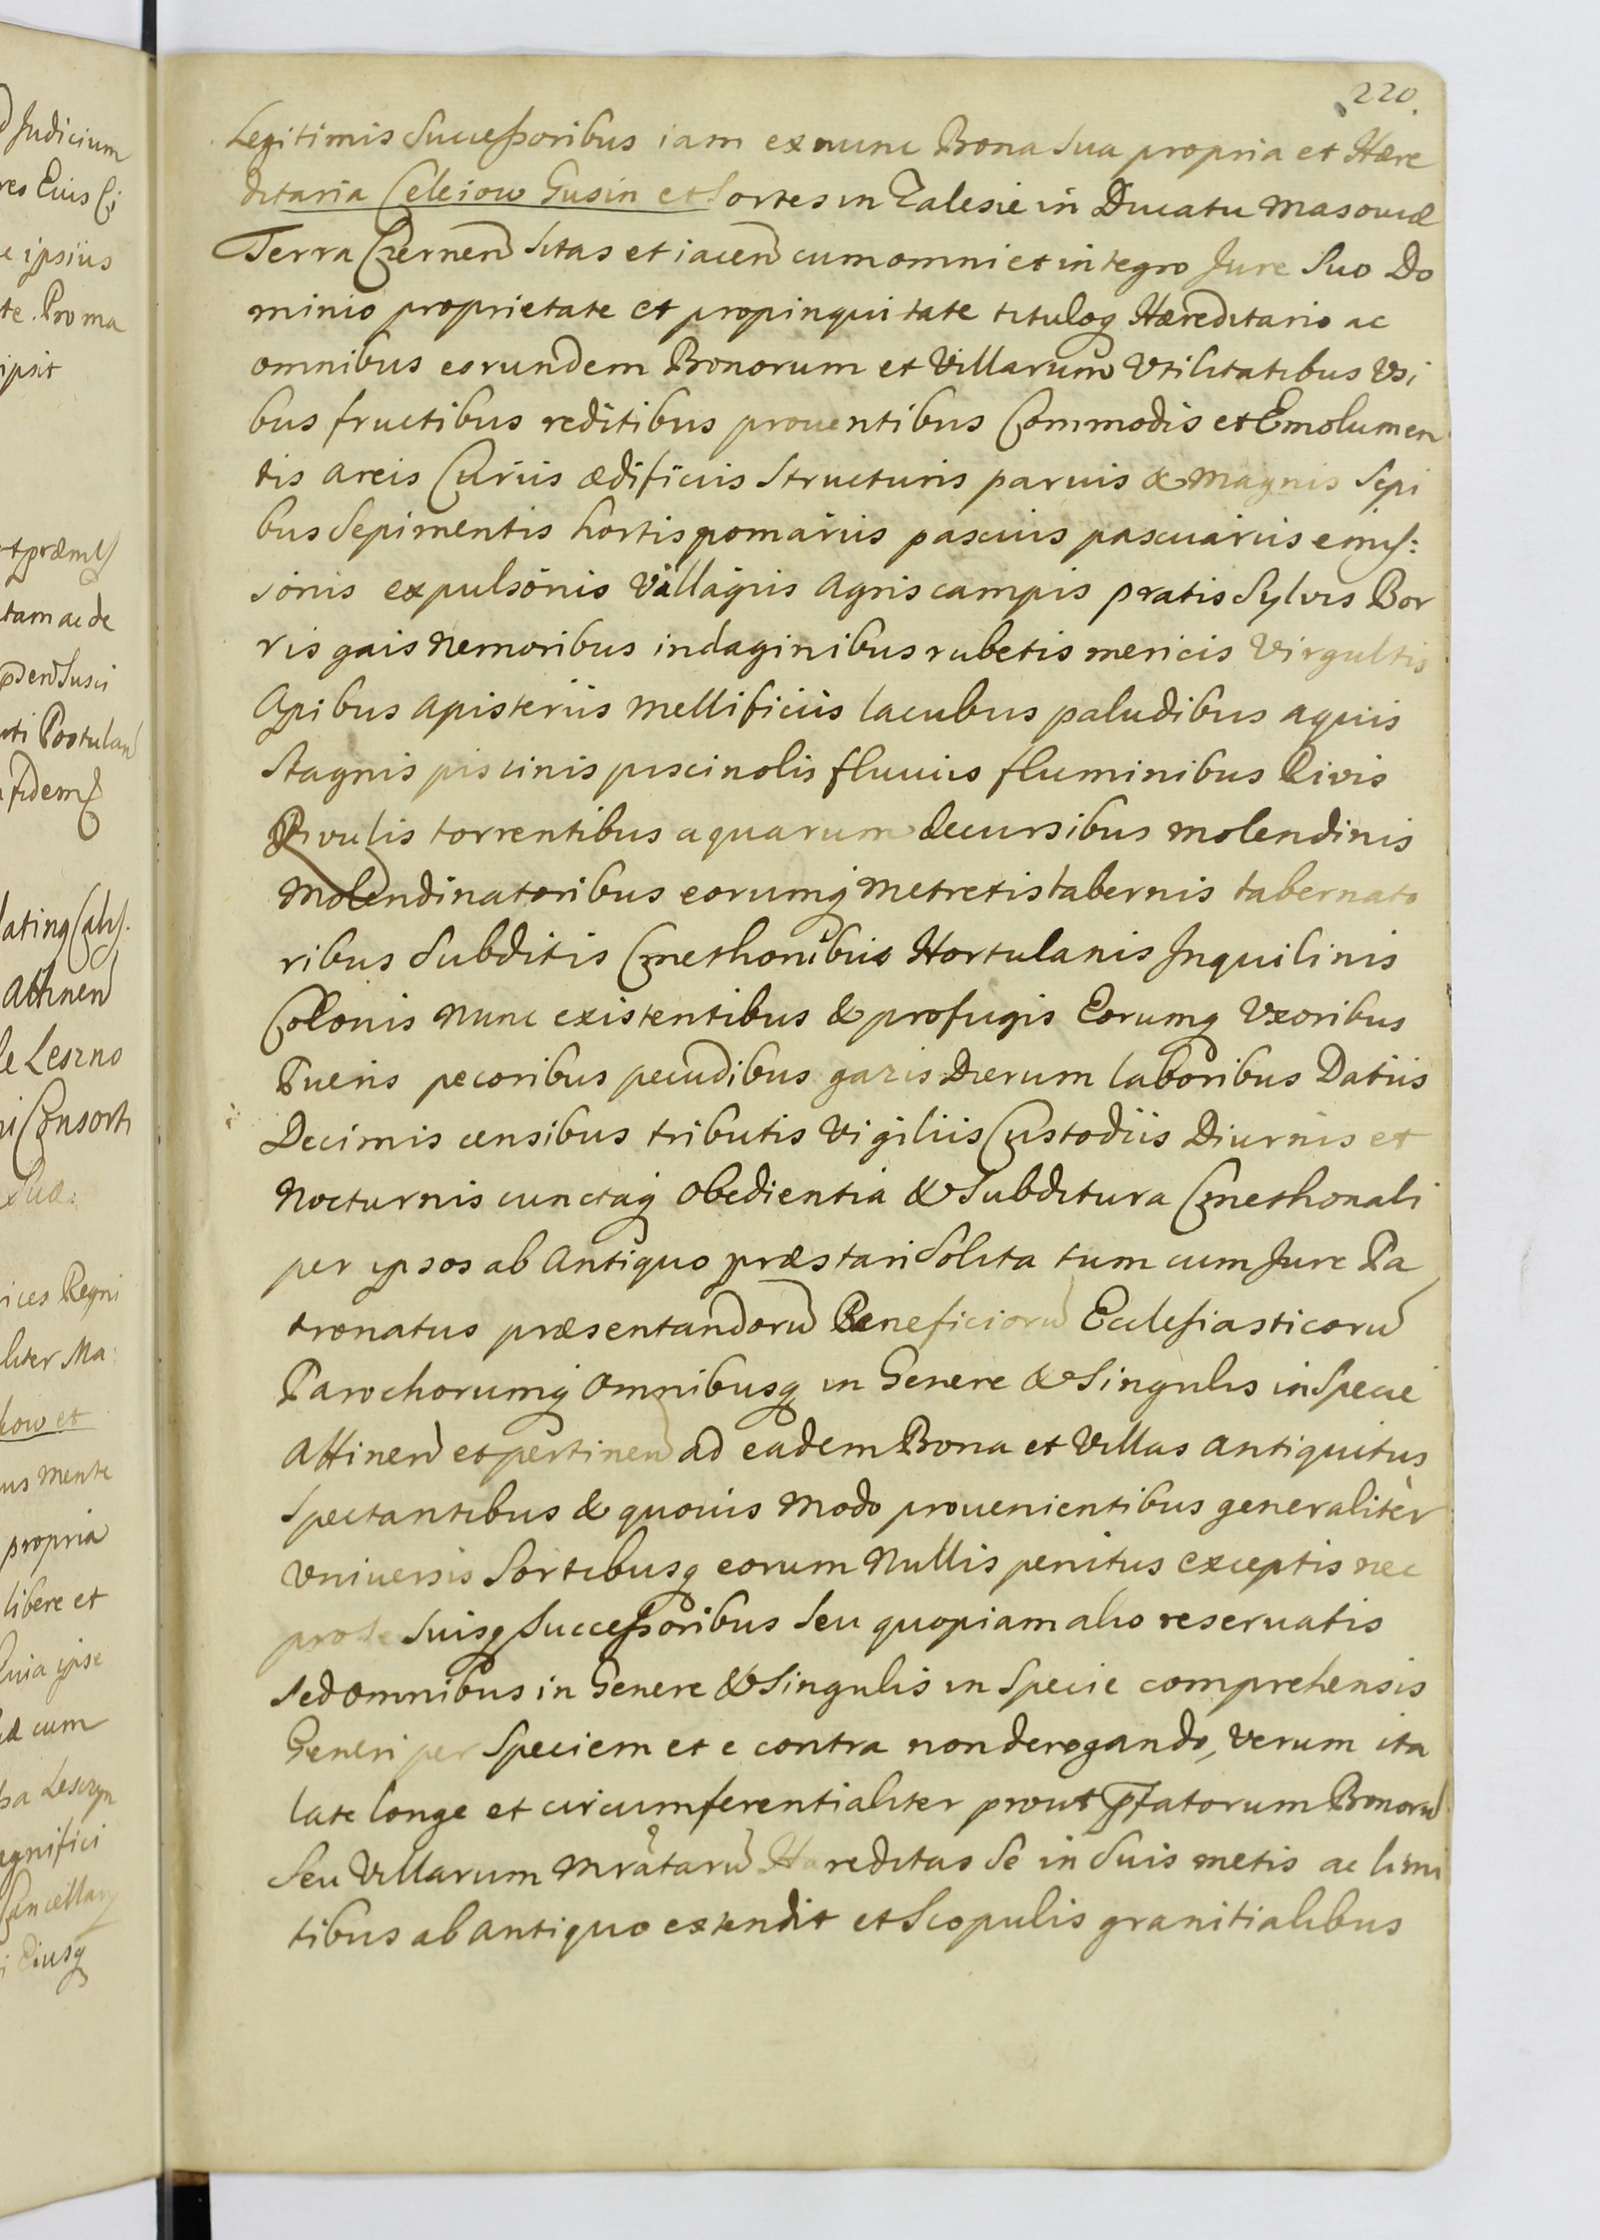 220.
Legitimis Successoribus iam exnunc Bona Sua propria et Hære
ditaria Celeiow Gusin et Sortes in Zalesie in Ducatu Masouiæ
Terra Czernen Sitas et iacen cum omni et integro Jure Suo Do
minio proprietate et propinquitate tituloq Hæreditario ac
omnibus eorundem Bonorum et Villarum Vtilitatibus Vsi
bus fructibus reditibus prouentibus Commodis et Emolumen
tis Areis Curiis ædificiis Structuris paruis & Magnis Sepi
bus Sepimentis hortis pomariis pascuis pascuariis emis:
sionis expulsionis Villagiis Agris campis pratis Sylvis Bor
ris gais Nemoribus indaginibus rubetis mericis Virgultis
Apibus Apisteriis Mellificiis lacubus paludibus aquis
Stagnis piscinis piscinolis fluuiis fluminibus Rivis
Rivulis torrentibus aquarum decursibus molendinis
Molendinatoribus eorumq Metretis tabernis tabernato
ribus Subditis Cmethonibus Hortulanis Inquilinis
Colonis Nunc existentibus & profugis Eorumq Vxoribus
Pueris pecoribus pecudibus gazis Dierum laboribus Datiis
Decimis censibus tributis Vigiliis Custodiis Diurnis et
Nocturnis cunctaq Obedientia & Subditura Cmethonali
per ipsos ab Antiquo præstari Solita tum cum Jure Pa
tronatus præsentandorū Beneficiorū Ecclesiasticorū
Parochorumq Omnibusq in Genere & Singulis in Specie
Attinen et pertinen ad eadem Bona et Villas Antiquitus
Spectantibus & quouis Modo prouenientibus generalitèr
Vniuersis Sortibusq eorum Nullis penitus exceptis nec
pro se Suisq Successoribus Seu quopiam alio reseruatis
Sed Omnibus in Genere & Singulis in Specie comprehensis
Generi per Speciem et e contra non derogando, Verum ita
late longe et circumferentialiter prout pfatorum Bonorū
Seu Villarum Mratarū Hæreditas Se in Suis metis ac limi
tibus ab Antiquo extendit et Scopulis granitialibus